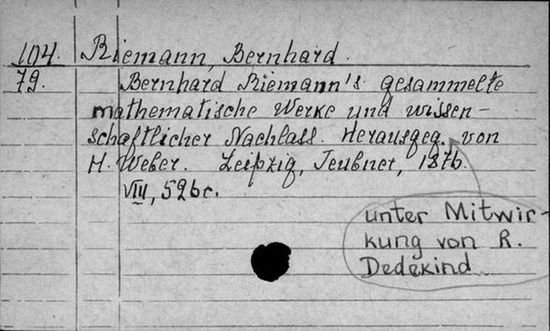 104. Riemann, Bernhard.
79. Bernhard Riemann's gesammelte
mathematische Werke und wissen-
schaftlicher Nachlass. Herausgeg. von
H. Weber. Leipzig, Teubner, 1876.
VIII, 526 c.
unter Mitwir-
kung von R.
Dedekind